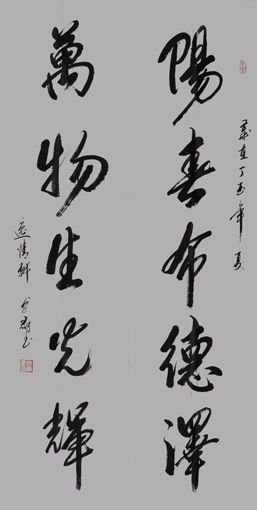 歲在丁酉年夏
陽春布德澤
萬物生光輝